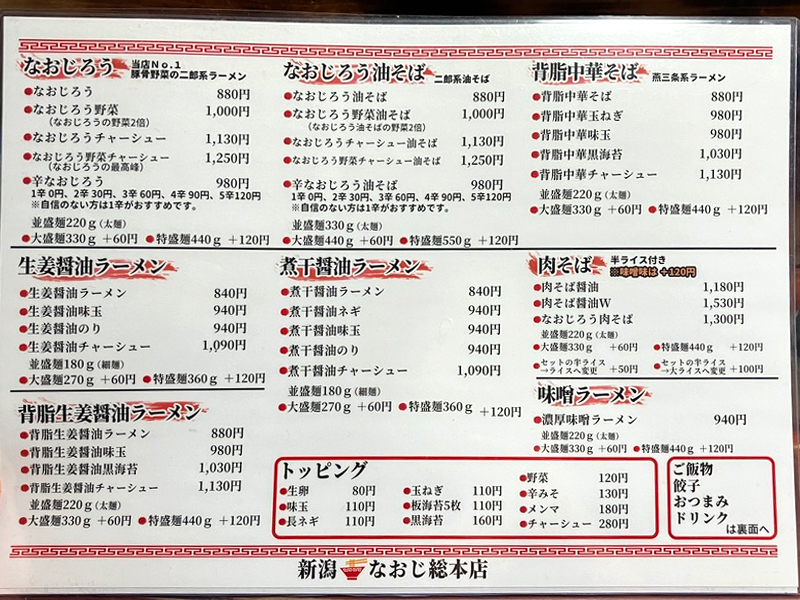 なおじろう 当店No.1
豚骨野菜の二郎系ラーメン
●なおじろう 880円
●なおじろう野菜 1,000円
(なおじろうの野菜2倍)
●なおじろうチャーシュー 1,130円
●なおじろう野菜チャーシュー 1,250円
(なおじろうの最高峰)
●辛なおじろう 980円
1辛 0円、2辛 30円、3辛 60円、4辛 90円、5辛120円
※自信のない方は1辛がおすすめです。
並盛麺220g(太麺)
●大盛麺330g +60円 ●特盛麺440g +120円
なおじろう油そば 二郎系油そば
●なおじろう油そば 880円
●なおじろう野菜油そば 1,000円
(なおじろう油そばの野菜2倍)
●なおじろうチャーシュー油そば 1,130円
●なおじろう野菜チャーシュー油そば 1,250円
●辛なおじろう油そば 980円
1辛 0円、2辛 30円、3辛 60円、4辛 90円、5辛120円
※自信のない方は1辛がおすすめです。
並盛麺330g(太麺)
●大盛麺440g +60円 ●特盛麺550g +120円
背脂中華そば 燕三条系ラーメン
●背脂中華そば 880円
●背脂中華玉ねぎ 980円
●背脂中華味玉 980円
●背脂中華黒海苔 1,030円
●背脂中華チャーシュー 1,130円
並盛麺220g(太麺)
●大盛麺330g +60円 ●特盛麺440g +120円
生姜醤油ラーメン
●生姜醤油ラーメン 840円
●生姜醤油味玉 940円
●生姜醤油のり 940円
●生姜醤油チャーシュー 1,090円
並盛麺180g(細麺)
●大盛麺270g +60円 ●特盛麺360g +120円
煮干醤油ラーメン
●煮干醤油ラーメン 840円
●煮干醤油ネギ 940円
●煮干醤油味玉 940円
●煮干醤油のり 940円
●煮干醤油チャーシュー 1,090円
並盛麺180g(細麺)
●大盛麺270g +60円 ●特盛麺360g +120円
肉そば 半ライス付き
※味噌味は +120円
●肉そば醤油 1,180円
●肉そば醤油W 1,530円
●なおじろう肉そば 1,300円
並盛麺220g(太麺)
●大盛麺330g +60円 ●特盛麺440g +120円
●セットの半ライス
→ライスへ変更 +50円
●セットの半ライス
→大ライスへ変更 +100円
背脂生姜醤油ラーメン
●背脂生姜醤油ラーメン 880円
●背脂生姜醤油味玉 980円
●背脂生姜醤油黒海苔 1,030円
●背脂生姜醤油チャーシュー 1,130円
並盛麺220g(太麺)
●大盛麺330g +60円 ●特盛麺440g +120円
味噌ラーメン
●濃厚味噌ラーメン 940円
並盛麺220g(太麺)
●大盛麺330g +60円 ●特盛麺440g +120円
トッピング
●生卵 80円
●味玉 110円
●長ネギ 110円
●玉ねぎ 110円
●板海苔5枚 110円
●黒海苔 160円
●野菜 120円
●辛みそ 130円
●メンマ 180円
●チャーシュー 280円
ご飯物
餃子
おつまみ
ドリンク
は裏面へ
新潟 なおじ総本店